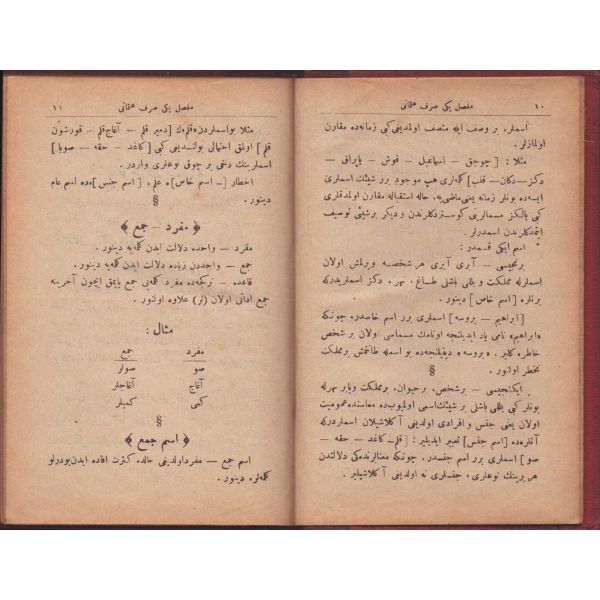 ١٠ مفصل یکی صرف عثمانی
اسملر، بر وصف ایله متصف اولمدینی کبی زمانه‌ده مقارن
اولمازلر .
مثلا : [ چوجق – اسماعیل – قوش – یاپراق –
دکز – دکان – قلب ] کله‌لری هپ موجود برر شیئك اسملری
ایسه‌ده بونلر زمانه یعنی ماضی‌یه، حاله استقباله مقارن اولمدقلری
کبی یالکز مسمالرینی کوستردکلرندن و دیکر برشیئی توصیف
ایتمدکلرندن اسمدرلر .
اسم ایکی قسمدر :
برنجیسی – آیری آیری هر شخصه ویرلمش اولان
اسملرله مملکت و بللی باشلی طاغ، نهر، دکز اسملریدرکه
بونلره [ اسم خاص ] دینور .
[ ابراهیم – بروسه ] اسملری برر اسم خاصدر، چونکه
«ابراهیم» نامی یاد ایدیلنجه اونامك مسماسی اولان بر شخص
خاطره کلیر . «بروسه» دیینلجه‌ده بو اسمله طانمش بر مملکت
تخطر اولنور .
§
ایکنجیسی – برشخص، برحیوان، برمملکت ویابر نهرله
بونلر کبی بللی باشلی بر شیئك اسمی اولمیوب‌ده معناسنده عمومیت
اولان یعنی جنس و افرادی اولدینی آکلاشیلان اسملردرکه
آنلره‌ده [ اسم جنس ] تعبیر ایدیلیر : [ قلم – کاغد – حقه –
صو ] اسملری برر اسم جنسدر. چونکه معنالرنده‌کی دلالتدن
هر برینك نوعلری، جنسلری نه اولدینی آکلاشیلیر .
مفصل یکی صرف عثمانی ١١
مثلا بواسملردن «قلم» ك [ دمیر قلم – آغاج قلم – قورشون
قلم ] اولمق احتمالی بولندینی کبی [ کاغد – حقه – صوبا ]
اسملرینك دخی بر چوق نوعلری واردر .
اخطار [ – اسم خاص ] ه علم، [ اسم جنس ] ه‌ده اسم عام
دینور .
§
﴿ مفرد – جمع ﴾
مفرد – واحده دلالت ایدن کله‌یه دینور .
جمع – واحددن زیاده دلالت ایدن کله‌یه دینور .
قاعده – ترکجه‌ده مفرد کله‌یی جمع یاپمق ایچون آخرینه
جمع اداتی اولان (لر) علاوه اولنور .
مثال :
مفرد جمع
صو صولر
آغاج آغاجلر
کمی کمیلر
§
﴿ اسم جمع ﴾
اسم جمع – مفرد اولدینی حالده کثرت افاده ایدن بودرلو
کله‌لره دینور .